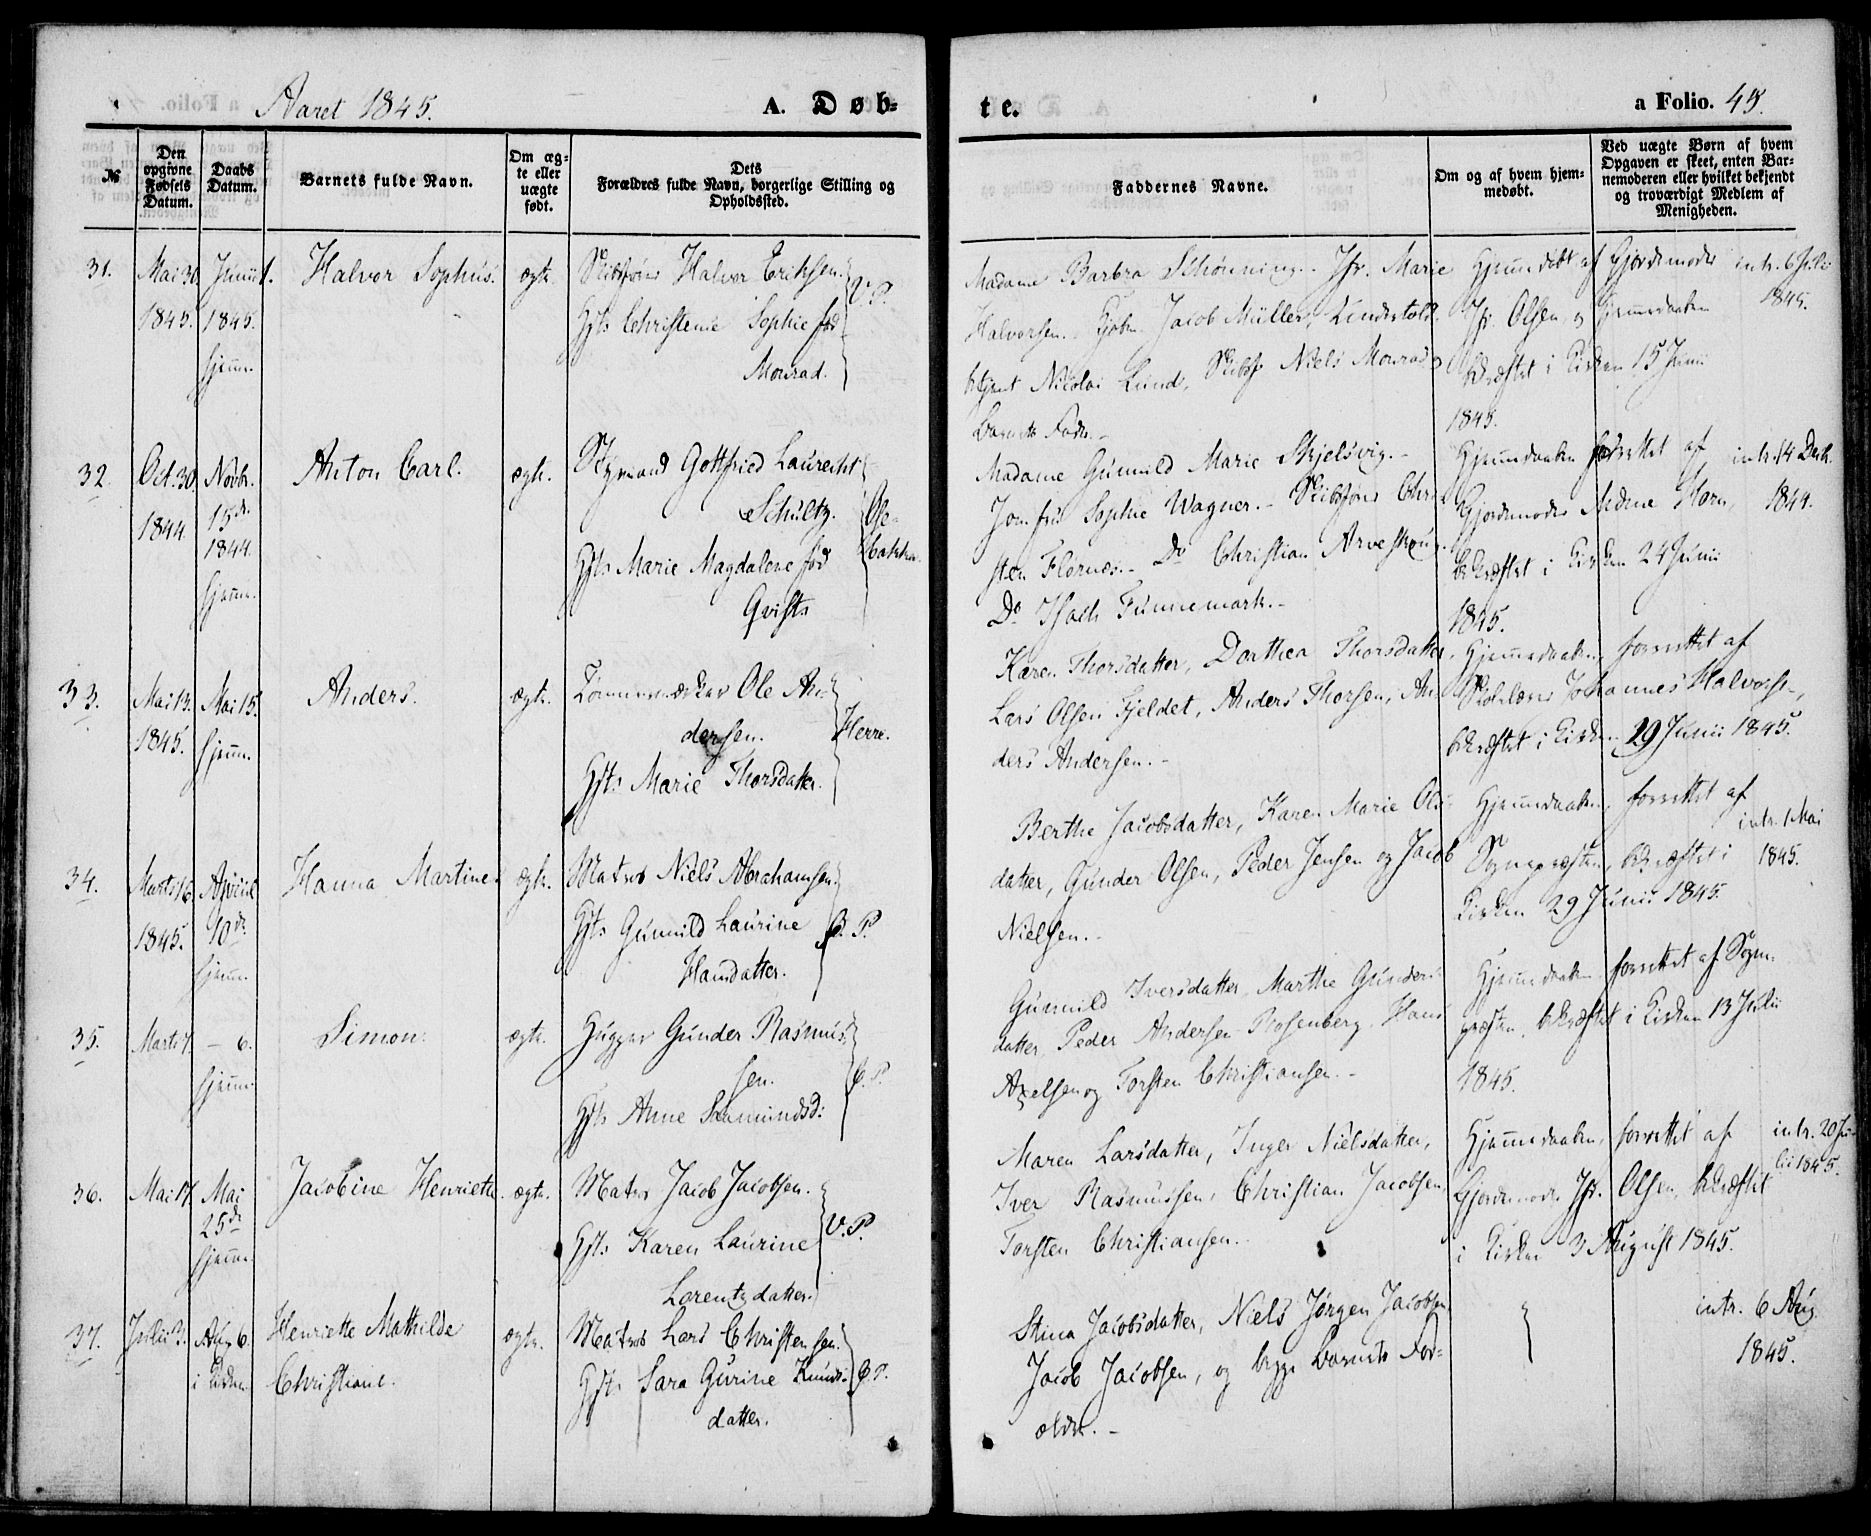 Aaret 1845.
A. Døb-
te.
a Folio. 45.
№
Den opgivne Fødsels Datum.
Daabs Datum.
Barnets fulde Navn.
Om æg-te eller uægte født.
Dets Forældres fulde Navn, borgerlige Stilling og Opholdssted.
Faddernes Navne.
Om og af hvem hjem-medøbt.
Ved uægte Børn af hvem Opgaven er skeet, enten Bar-nemoderen eller hvilket bekjendt og troværdigt Medlem af Menigheden.
31. Mai 30. 1845. Junii 1. 1845. hjem.
Halvor Sophus. ægte.
Skibsfører Halvor Eriksen.
Gjts Christence Sophie fød
Monrad.
V. P.
Madame Barbra Schønning. Jfr. Marie
Halvorsen. Kjøbm. Jacob Müller, Undertold-
betjent Nicolai Lund, Skibsf. Niels Monrad
Barnets Fader.
Hjemmedøbt af Gjordemoder
Jfr. Olsen og Hjemmedaaben
bekræftet i Kirken 15 Junii
1845.
intr. 6 Julii
1845.
32. Oct. 30. 1844 Novbr. 15de 1844. hjem.
Anton Carl. ægte.
Styrmand Gottfried Laurentst
Schultz.
Gjts Marie Magdalene fød
Qvist
Ose-
bakken.
Madame Gunnild Marie Skjelsvig.
Jomfru Sophie Wagner. Skibsfører Chri-
sten Flornes. Do Christian Arveskoug.
Do Isach Funnemark.
Hjemmedaaben forrettet af
Gjordemoder Mdme Horn,
bekræftet i Kirken 24 Junii
1845.
intr. 14 Decbr.
1844.
33. Mai 13. 1845. Mai 15. hjem.
Anders. ægte.
Tømmermærker Ole An-
dersen.
Gjts Marie Thorsdatter.
Herre.
Karen Thorsdatter, Dorthea Thorsdatter.
Lars Olsen Fjeldet, Anders Thorsen, An-
ders Andersen.
Hjemmedaaben, forrettet af
Skolelærer Johannes Halvors-,
bekræftet i Kirken 29 Junii 1845.
34. Marts 16. 1845. April 10de hjem.
Hanna Martine. ægte.
Matros Niels Abrahamsen.
Gjts Gunnild Laurine
Hansdatter.
Ø. P.
Berthe Jacobsdatter, Karen Marie Ols-
datter, Gunder Olsen, Peder Jensen og Jacob
Nielsen.
Hjemmedaaben, forrettet af
Sognepræsten, bekræftet i
Kirken 29 Junii 1845.
intr. 1 Mai
1845.
35. Marts 7. — 6. hjem.
Simon. ægte.
Hugger Gunder Rasmus-
sen.
Gjts Anne Samundsd:
Ø. P.
Gunnild Iversdatter, Marthe Gunders-
datter, Peder Andersen Rosenberg. Hans
Axelsen og Torsten Christiansen.
Hjemmedaaben forrettet af Sogne-
præsten, bekræftet i Kirken 13 Julii
1845.
36. Mai 17. Mai 25de hjemme
Jacobine Henriette. ægte.
Matros Jacob Jacobsen.
Gjts Karen Laurine
Lorentzdatter.
V. P.
Maren Larsdatter, Inger Nielsdatter,
Iver Rasmussen, Christian Jacobsen,
Torsten Christiansen.
Hjemmedaaben, forrettet af
Gjordemoder Jfr. Olsen, bekræftet
i Kirken 3 August 1845.
intr. 20 Ju-
lii 1845.
37. Julii 3. Aug. 6. i Kirken
Henriette Mathilde
Christiane. ægte.
Matros Lars Christensen.
Gjts Sara Gurine Knuds-
datter.
Ø. P.
Stina Jacobsdatter, Niels Jørgen Jacobsen
Jacob Jacobsen, og begge Barnets For-
ældre.
intr. 6 Aug.
1845.